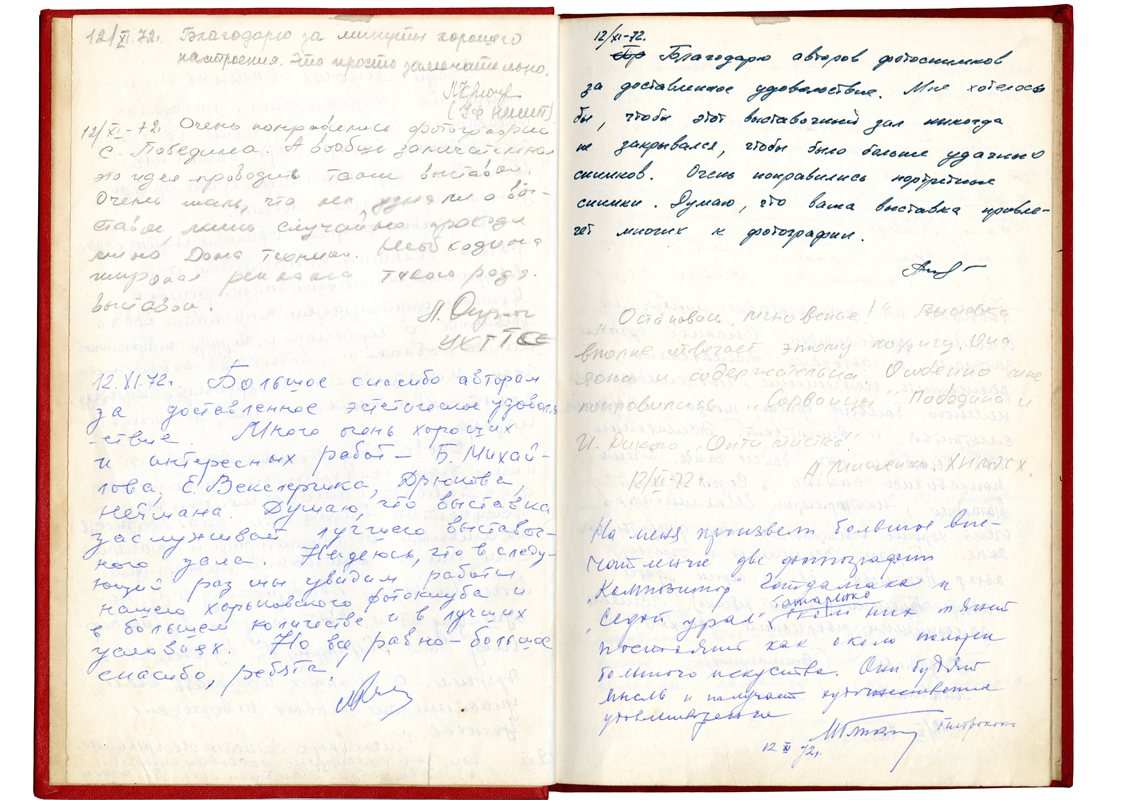 12/XI.72г. Благодарю за минуты хорошего
настроения. Это просто замечательно.
12/XI-72 Очень понравились фотографии
С. Победина. А вообще замечательная
это идея проводить такие выставки.
Очень жаль, что мы узнали о вы-
ставке лишь случайно проходя
мимо Дома техники. Необходима
широкая реклама такого рода
выставок.
12.XI.72г. Большое спасибо авторам
за доставленное эстетическое удоволь
-ствие. Много очень хороших
и интересных работ – Б. Михай-
лова, Е.
Думаю, что выставка
заслуживает лучшего выставоч-
ного зала. Надеюсь, что в следу-
ющий раз мы увидим работы
нашего харьковского фотоклуба и
в большем количестве и в лучших
условиях. Но всё равно большое
спасибо, ребята.
12/XI-72.
Благодарю авторов фотоснимков
за доставленное удовольствие. Мне хотелось
бы, чтобы этот выставочный зал никогда
не закрывался, чтобы было больше удачных
снимков. Очень понравились портретные
снимки. Думаю, что ваша выставка привле-
чет многих к фотографии.
Остановись, мгновенье!" Выставка
вполне отвечает этому лозунгу. Она
и содержательна. Особенно мне
понравились "Сорванцы" Победина и
12/XI-72
На меня произвели большое впе-
чатление две фотографии
"Композитор и
"Седой урал"
постояли как около полотен
большого искусства. Они будят
мысль и
12 XI 72г.